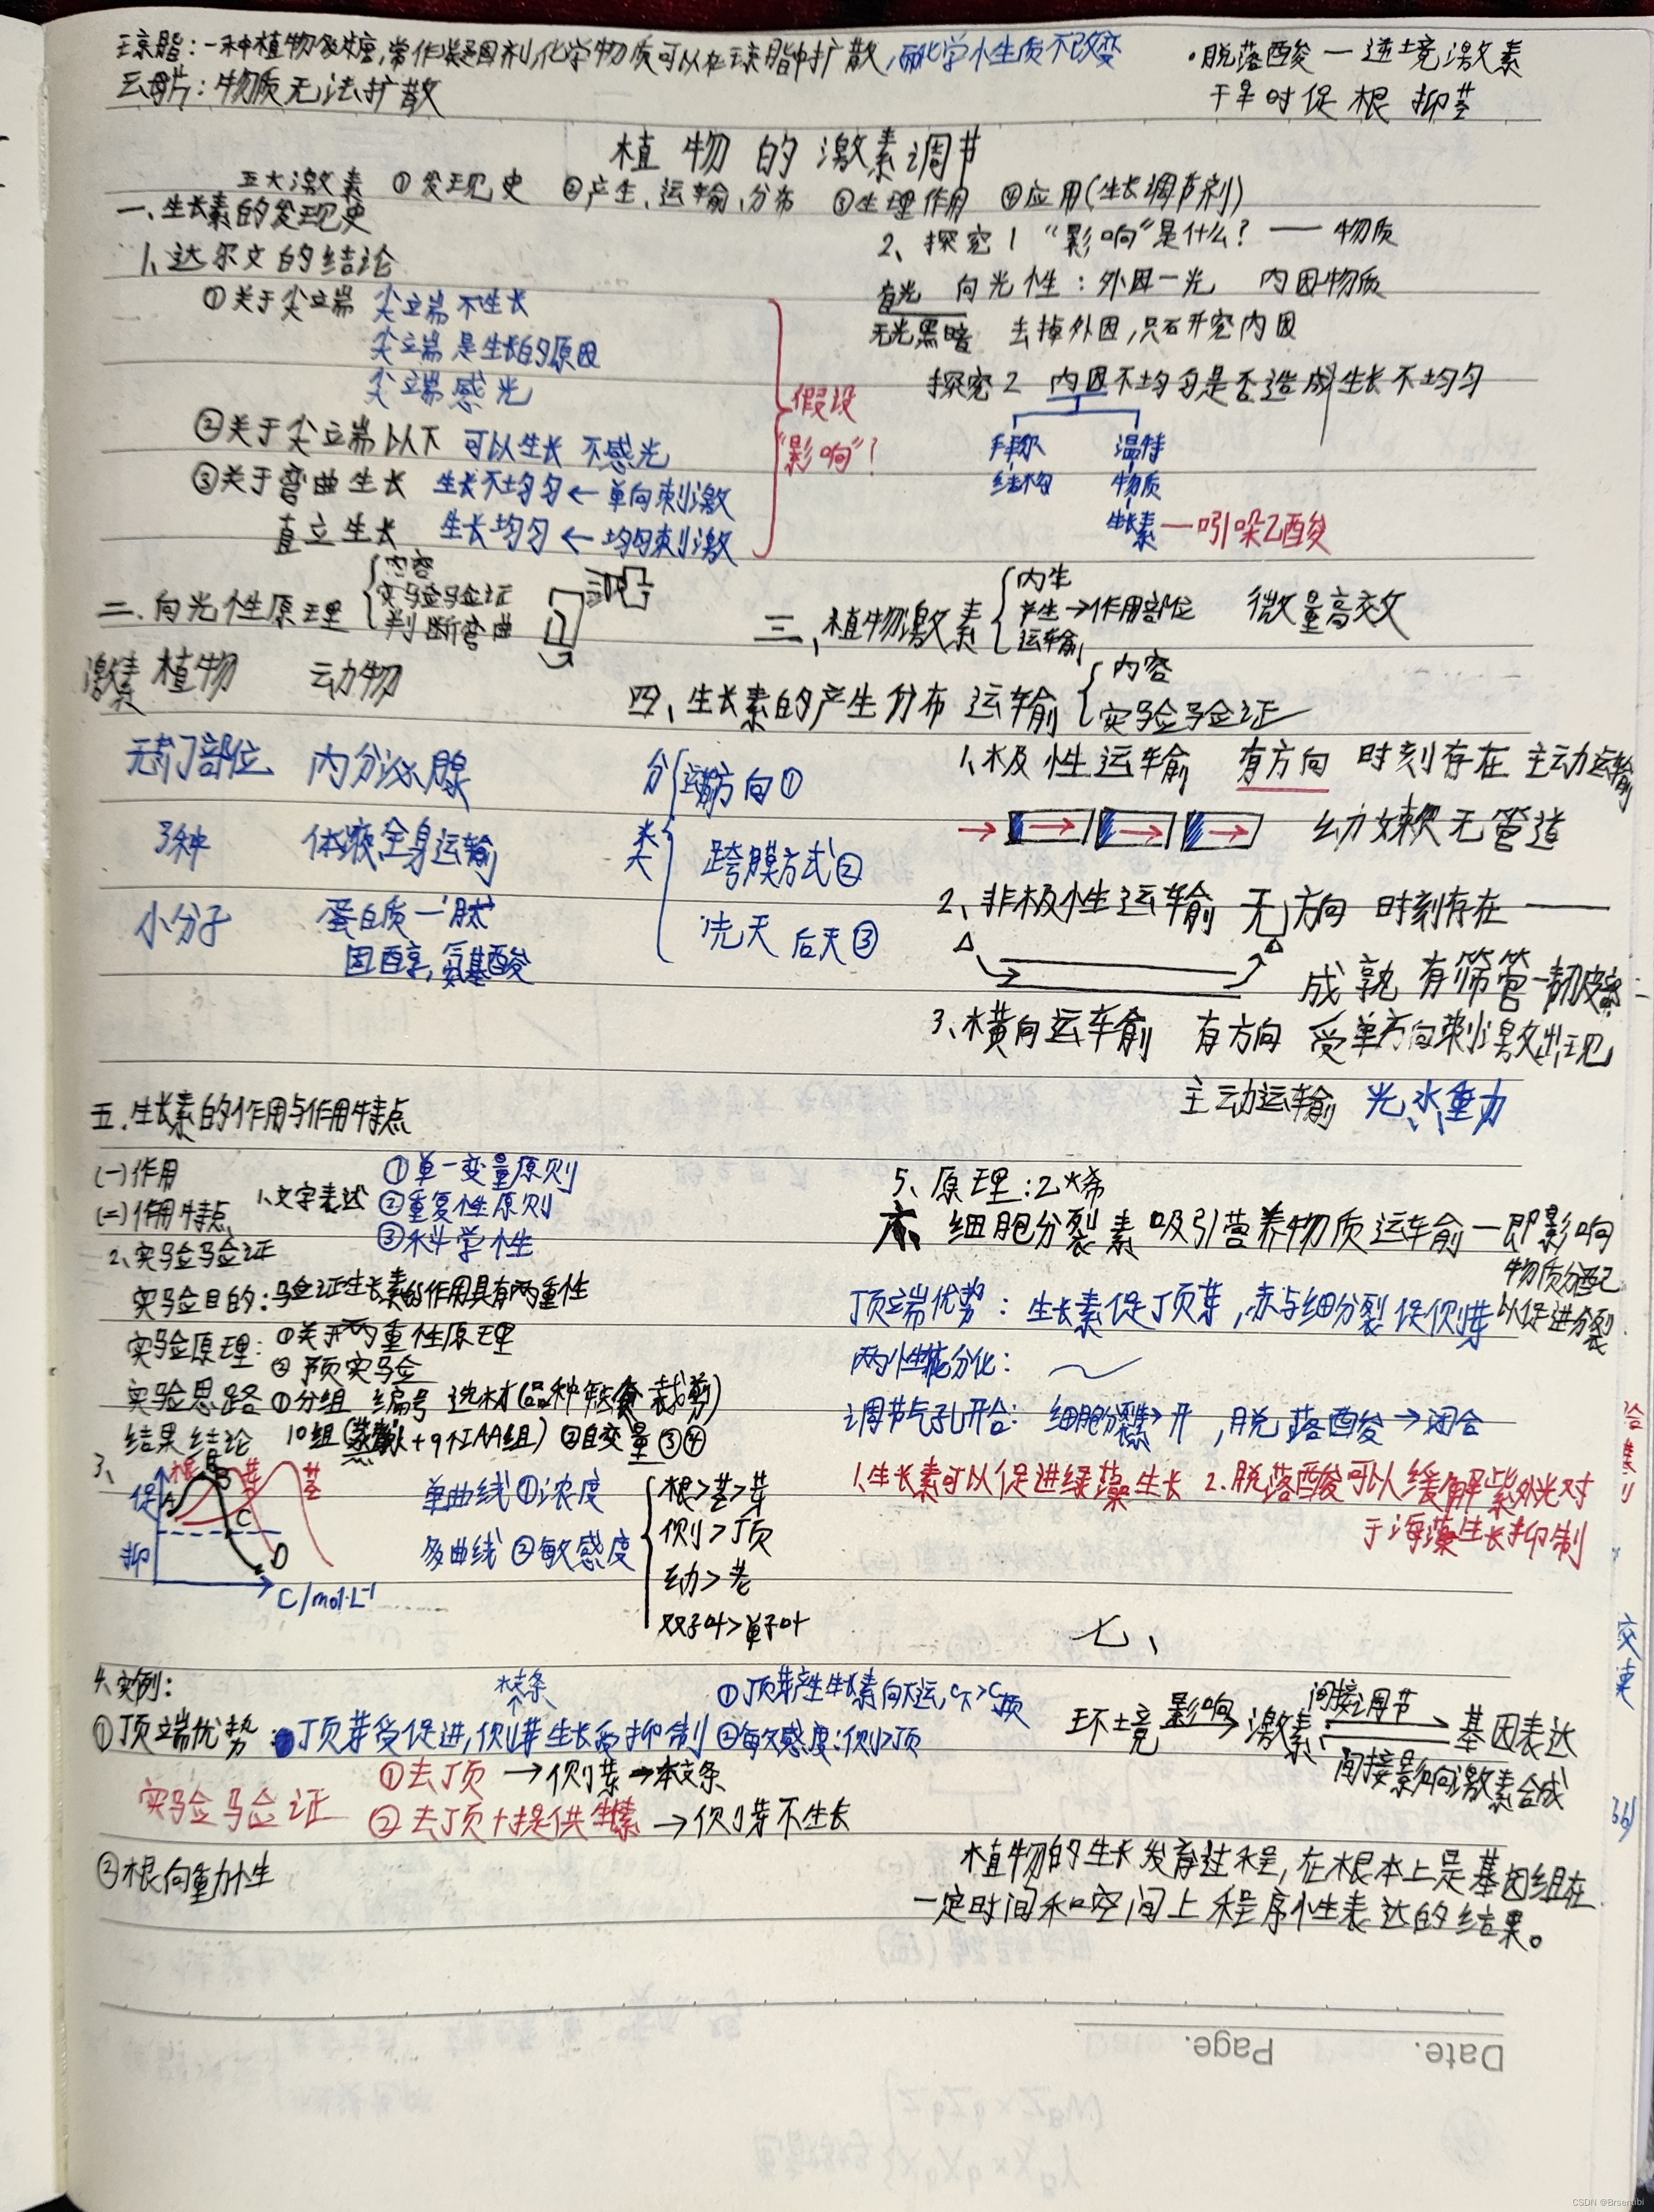 琼脂：一种植物多糖，常作凝固剂，化学物质可以在琼脂中扩散，而化学性质不改变
云母片：物质无法扩散
·脱落酸一逆境激素
干旱时促根 抑茎
植物的激素调节
五大激素 ①发现史 ②产生、运输、分布 ③生理作用 ④应用(生长调节剂)
一、生长素的发现史
1、达尔文的结论
①关于尖端 尖端不生长
尖端是生长的原因
尖端感光
②关于尖端以下 可以生长 不感光
③关于弯曲生长 生长不均匀←单向刺激
直立生长 生长均匀←均匀刺激
假设
"影响"？
2、探究1 "影响"是什么？——物质
有光 向光性：外因一光 内因物质
无光黑暗 去掉外因，只研究内因
探究2 内因不均匀是否造成生长不均匀
拜尔 温特
结构 物质
生长素—吲哚乙酸
二、向光性原理
内容
实验验证
判断弯曲
三、植物激素
内生
产生→作用部位
运输
微量高效
激素 植物 动物
无专门部位 内分泌腺
多种 体液全身运输
小分子 蛋白质一肽
固醇，氨基酸
四、生长素的产生分布 运输
内容
实验验证
分类
运输方向①
跨膜方式②
先天 后天③
1、极性运输 有方向 时刻存在 主动运输
幼嫩无管道
2、非极性运输 无方向 时刻存在——
成熟 有筛管—韧皮部
3、横向运输 有方向 受单方向刺激出现
主动运输 光、水、重力
五、生长素的作用与作用特点
(一)作用
(二)作用特点 1、文字表述
①单一变量原则
②重复性原则
③科学性
2、实验验证
实验目的：验证生长素的作用具有两重性
实验原理：①关于两重性原理
②预实验
实验思路 ①分组 编号 选材(品种年龄 裁剪)
结果结论 10组(蒸馏水+9个IAA组) ②自变量③④
3、
促
抑
根 芽 茎
A B C D
C/mol·L-1
单曲线 ①浓度
多曲线 ②敏感度
根>芽>茎
侧>顶
幼>老
双子叶>单子叶
5、原理：乙烯
六、细胞分裂素 吸引营养物质运输一即影响
物质分配
以促进分裂
顶端优势：生长素促顶芽，赤与细分裂促侧芽
两性花分化：
调节气孔开合：细胞分裂素→开，脱落酸→闭合
1、生长素可以促进绿藻生长 2、脱落酸可以缓解紫外光对
于海藻生长抑制
4、实例：
枝条
①顶端优势：顶芽受促进，侧芽生长受抑制
①顶芽产生生长素向下运，C下>C顶
②敏感度：侧>顶
实验验证
①去顶→侧芽→枝条
②去顶+提供生长素→侧芽不生长
②根向重力性
七、
环境 影响→ 激素 间接调节 基因表达
间接影响激素合成
植物的生长发育过程，在根本上是基因组在
一定时间和空间上程序性表达的结果。
交
Date. Page.
CSDN @Brsentibi